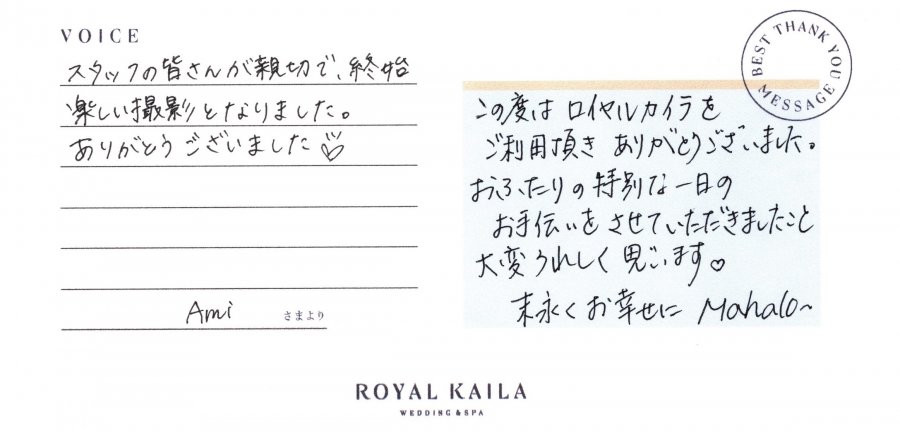 VOICE
スタッフの皆さんが親切で、終始
楽しい撮影となりました。
ありがとうございました♡
Ami さまより
BEST THANK YOU
MESSAGE
この度は ロイヤルカイラを
ご利用頂き ありがとうございました。
おふたりの特別な一日の
お手伝いをさせていただきましたこと
大変うれしく思います♡
末永くお幸せに Mahalo~
ROYAL KAILA
WEDDING & SPA